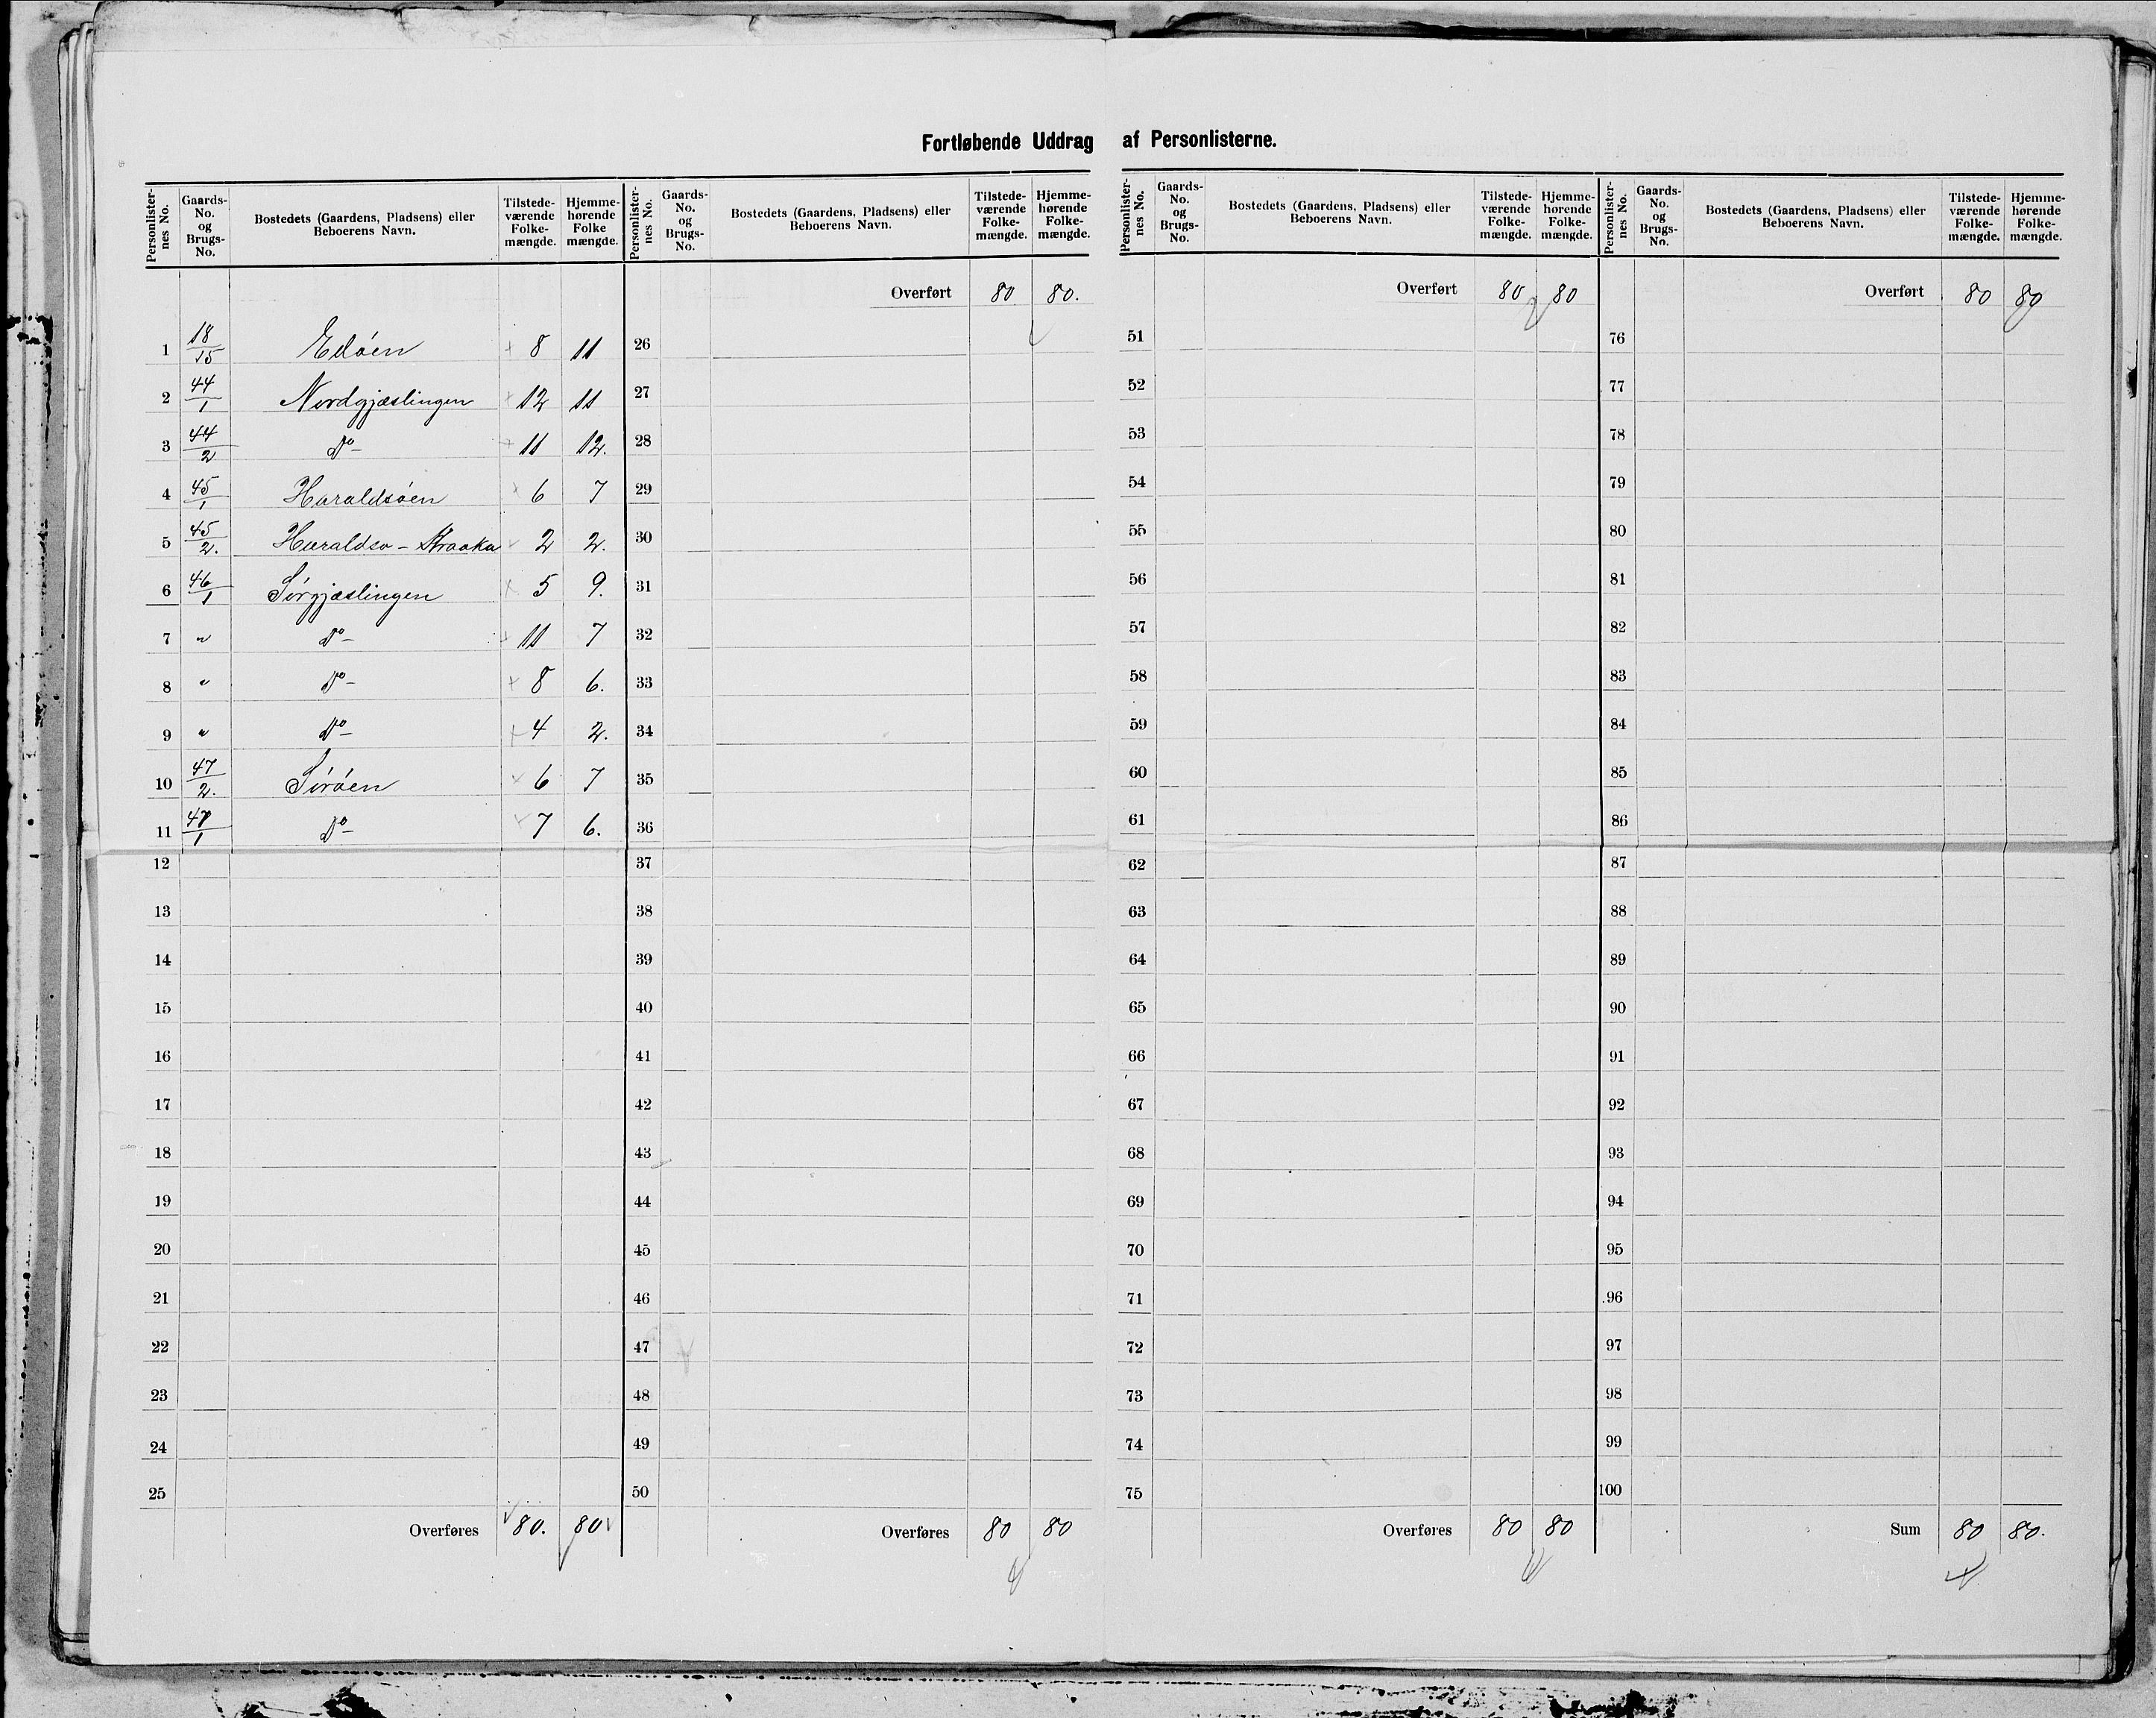 Fortløbende Uddrag af Personlisterne.
Personlister-nes No. Gaards-No. og Brugs-No. Bostedets (Gaardens, Pladsens) eller Beboerens Navn. Tilstede-værende Folke-mængde. Hjemme-hørende Folke mængde.
1 18/15 Edøen 8 11
2 44/1 Nordgjæslingen 12 11
3 44/2 Do 11 12.
4 45/1 Haraldsøen 6 7
5 45/2. Haraldsø - Kraaka 2 2.
6 46/1 Sørgjæslingen 5 9.
7 " Do 11 7
8 " Do 8 6.
9 " Do 4 2.
10 47/2. Sørøen 6 7
11 47/1 Do 7 6.
12
13
14
15
16
17
18
19
20
21
22
23
24
25
Overføres 80. 80
Personlister-nes No. Gaards-No. og Brugs-No. Bostedets (Gaardens, Pladsens) eller Beboerens Navn. Tilstede-værende Folke-mængde. Hjemme-hørende Folke-mængde.
Overført 80 80.
26
27
28
29
30
31
32
33
34
35
36
37
38
39
40
41
42
43
44
45
46
47
48
49
50
Overføres 80 80
Personlister-nes No. Gaards-No. og Brugs-No. Bostedets (Gaardens, Pladsens) eller Beboerens Navn. Tilstede-værende Folke-mængde. Hjemme-hørende Folke-mængde.
Overført 80 80
51
52
53
54
55
56
57
58
59
60
61
62
63
64
65
66
67
68
69
70
71
72
73
74
75
Overføres 80 80
Personlister-nes No. Gaards-No. og Brugs-No. Bostedets (Gaardens, Pladsens) eller Beboerens Navn. Tilstede-værende Folke-mængde. Hjemme-hørende Folke-mængde.
Overført 80 80
76
77
78
79
80
81
82
83
84
85
86
87
88
89
90
91
92
93
94
95
96
97
98
99
100
Sum 80 80.